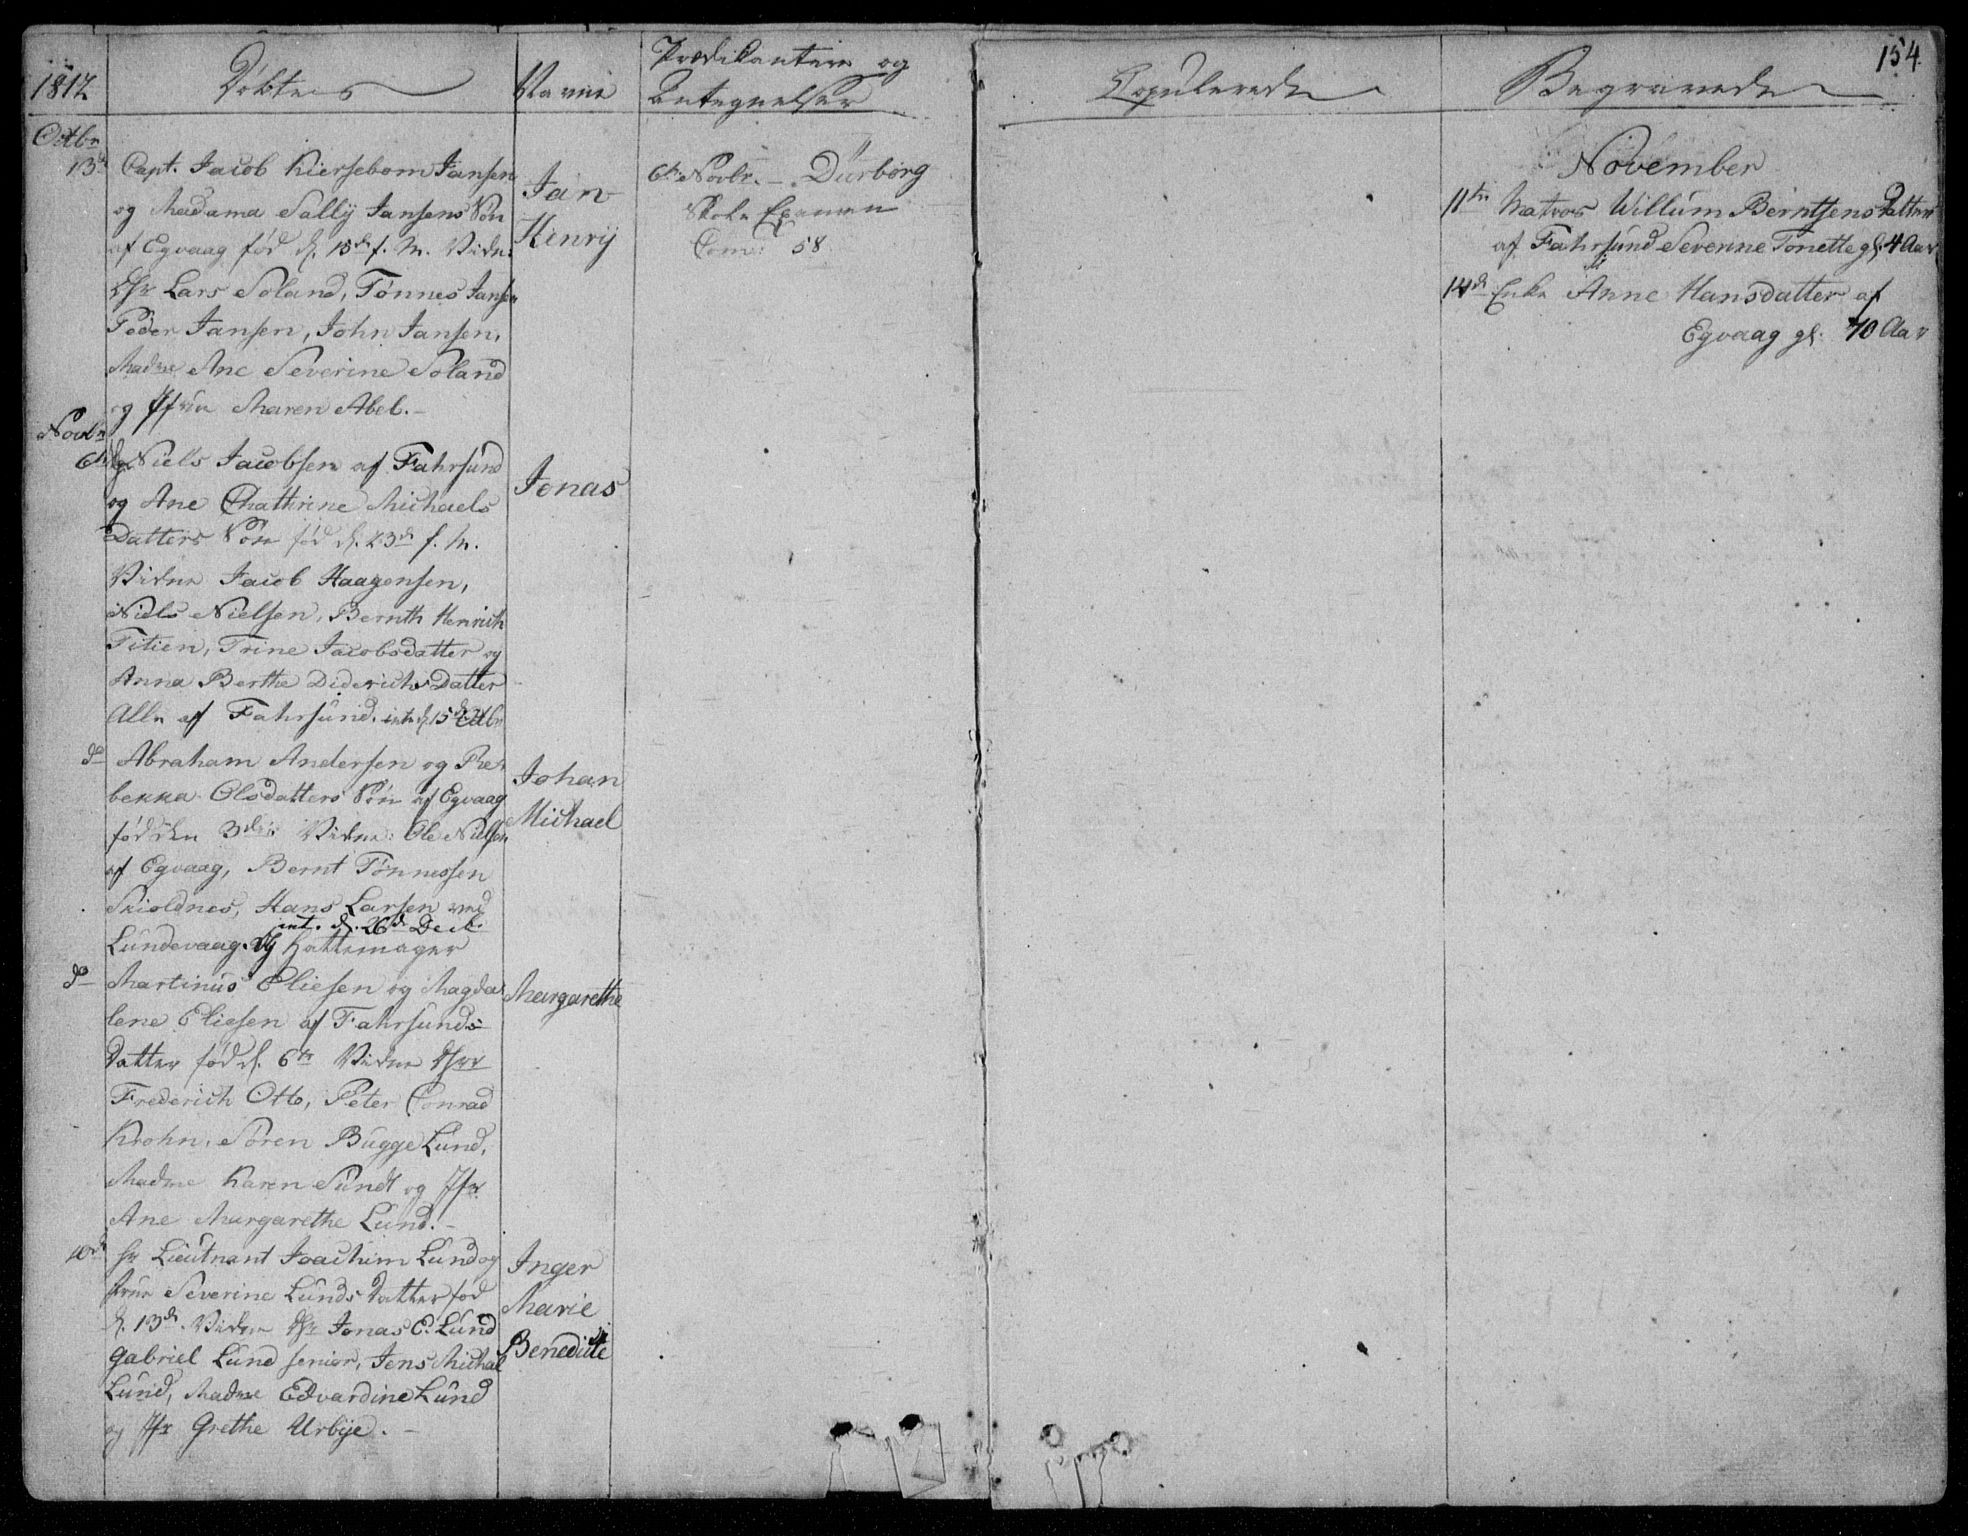 1812
Døbte
Navne
Prædikantere og
Antegnelser
Copulerede
Begravede
154
Octbr
13de Capt. Jacob Kiersebom Jansen
og Madama Sally Jansens Søn
af Egvaag fød d. 15de f. M. Vidn:
Hr Lars Soland, Tønnes Jansen
Peder Jansen, John Jansen,
Madme Ane Severine Soland
og Jfrue Maren Abel.
Jan
Henrij
6te Novbr. - Dürborg
Skole Examen
Com: 58
Novbr
6te Niels Jacobsen af Fahrsund
og Ane Chathrine Michaels
Datters Søn fød d. 23de f. M.
Vidne Jacob Haagensen,
Niels Nielsen, Bernth Henrich
Titien, Trine Jacobsdatter og
Anna Berthe Diderichs Datter
Alle af Fahrsund. int. d. 15de Octbr
Jonas
do Abraham Andersen og Re-
bekka Olsdatters Søn af Egvaag
fød den 3die Vidne: Ole Nielsen
af Egvaag, Bernt Tønnessen
Skioldnes, Hans Larsen ved
int. d. 26de Decb.
Lundevaag. og Hattemager
Johan
Michael
do Martinus Eliesen og Magda-
lene Eliesen af Fahrsunds
Datter fød d. 6te Vidne Hrr
Frederich Otto, Peter Conrad
Krohn, Søren Bugge Lund,
Madme Karen Sundt og Jfr
Ane Margarethe Lund.-
Margarethe
10de Hr Lieutnant Joachim Lund og
Frue Severine Lunds Datter fød
d. 13de. Vidne Hr Jonas E. Lund
Gabriel Lund senior, Jens Michael
Lund, Madme Edvardine Lund
og Jfr Grethe Urbye. -
Inger
Marie
Benedicte
November
11te Matros Willum Berntsens Datter
af Fahrsund Severine Tonette gl. 4 Aar
14de Enke Anne Hansdatter af
Egvaag gl. 70 Aar